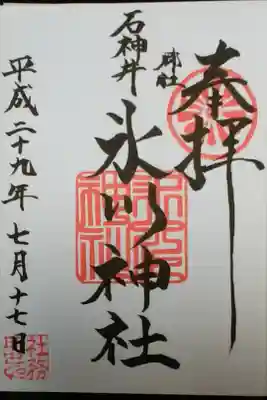 奉拝
石神井
氷川神社
平成二十九年七月十七日